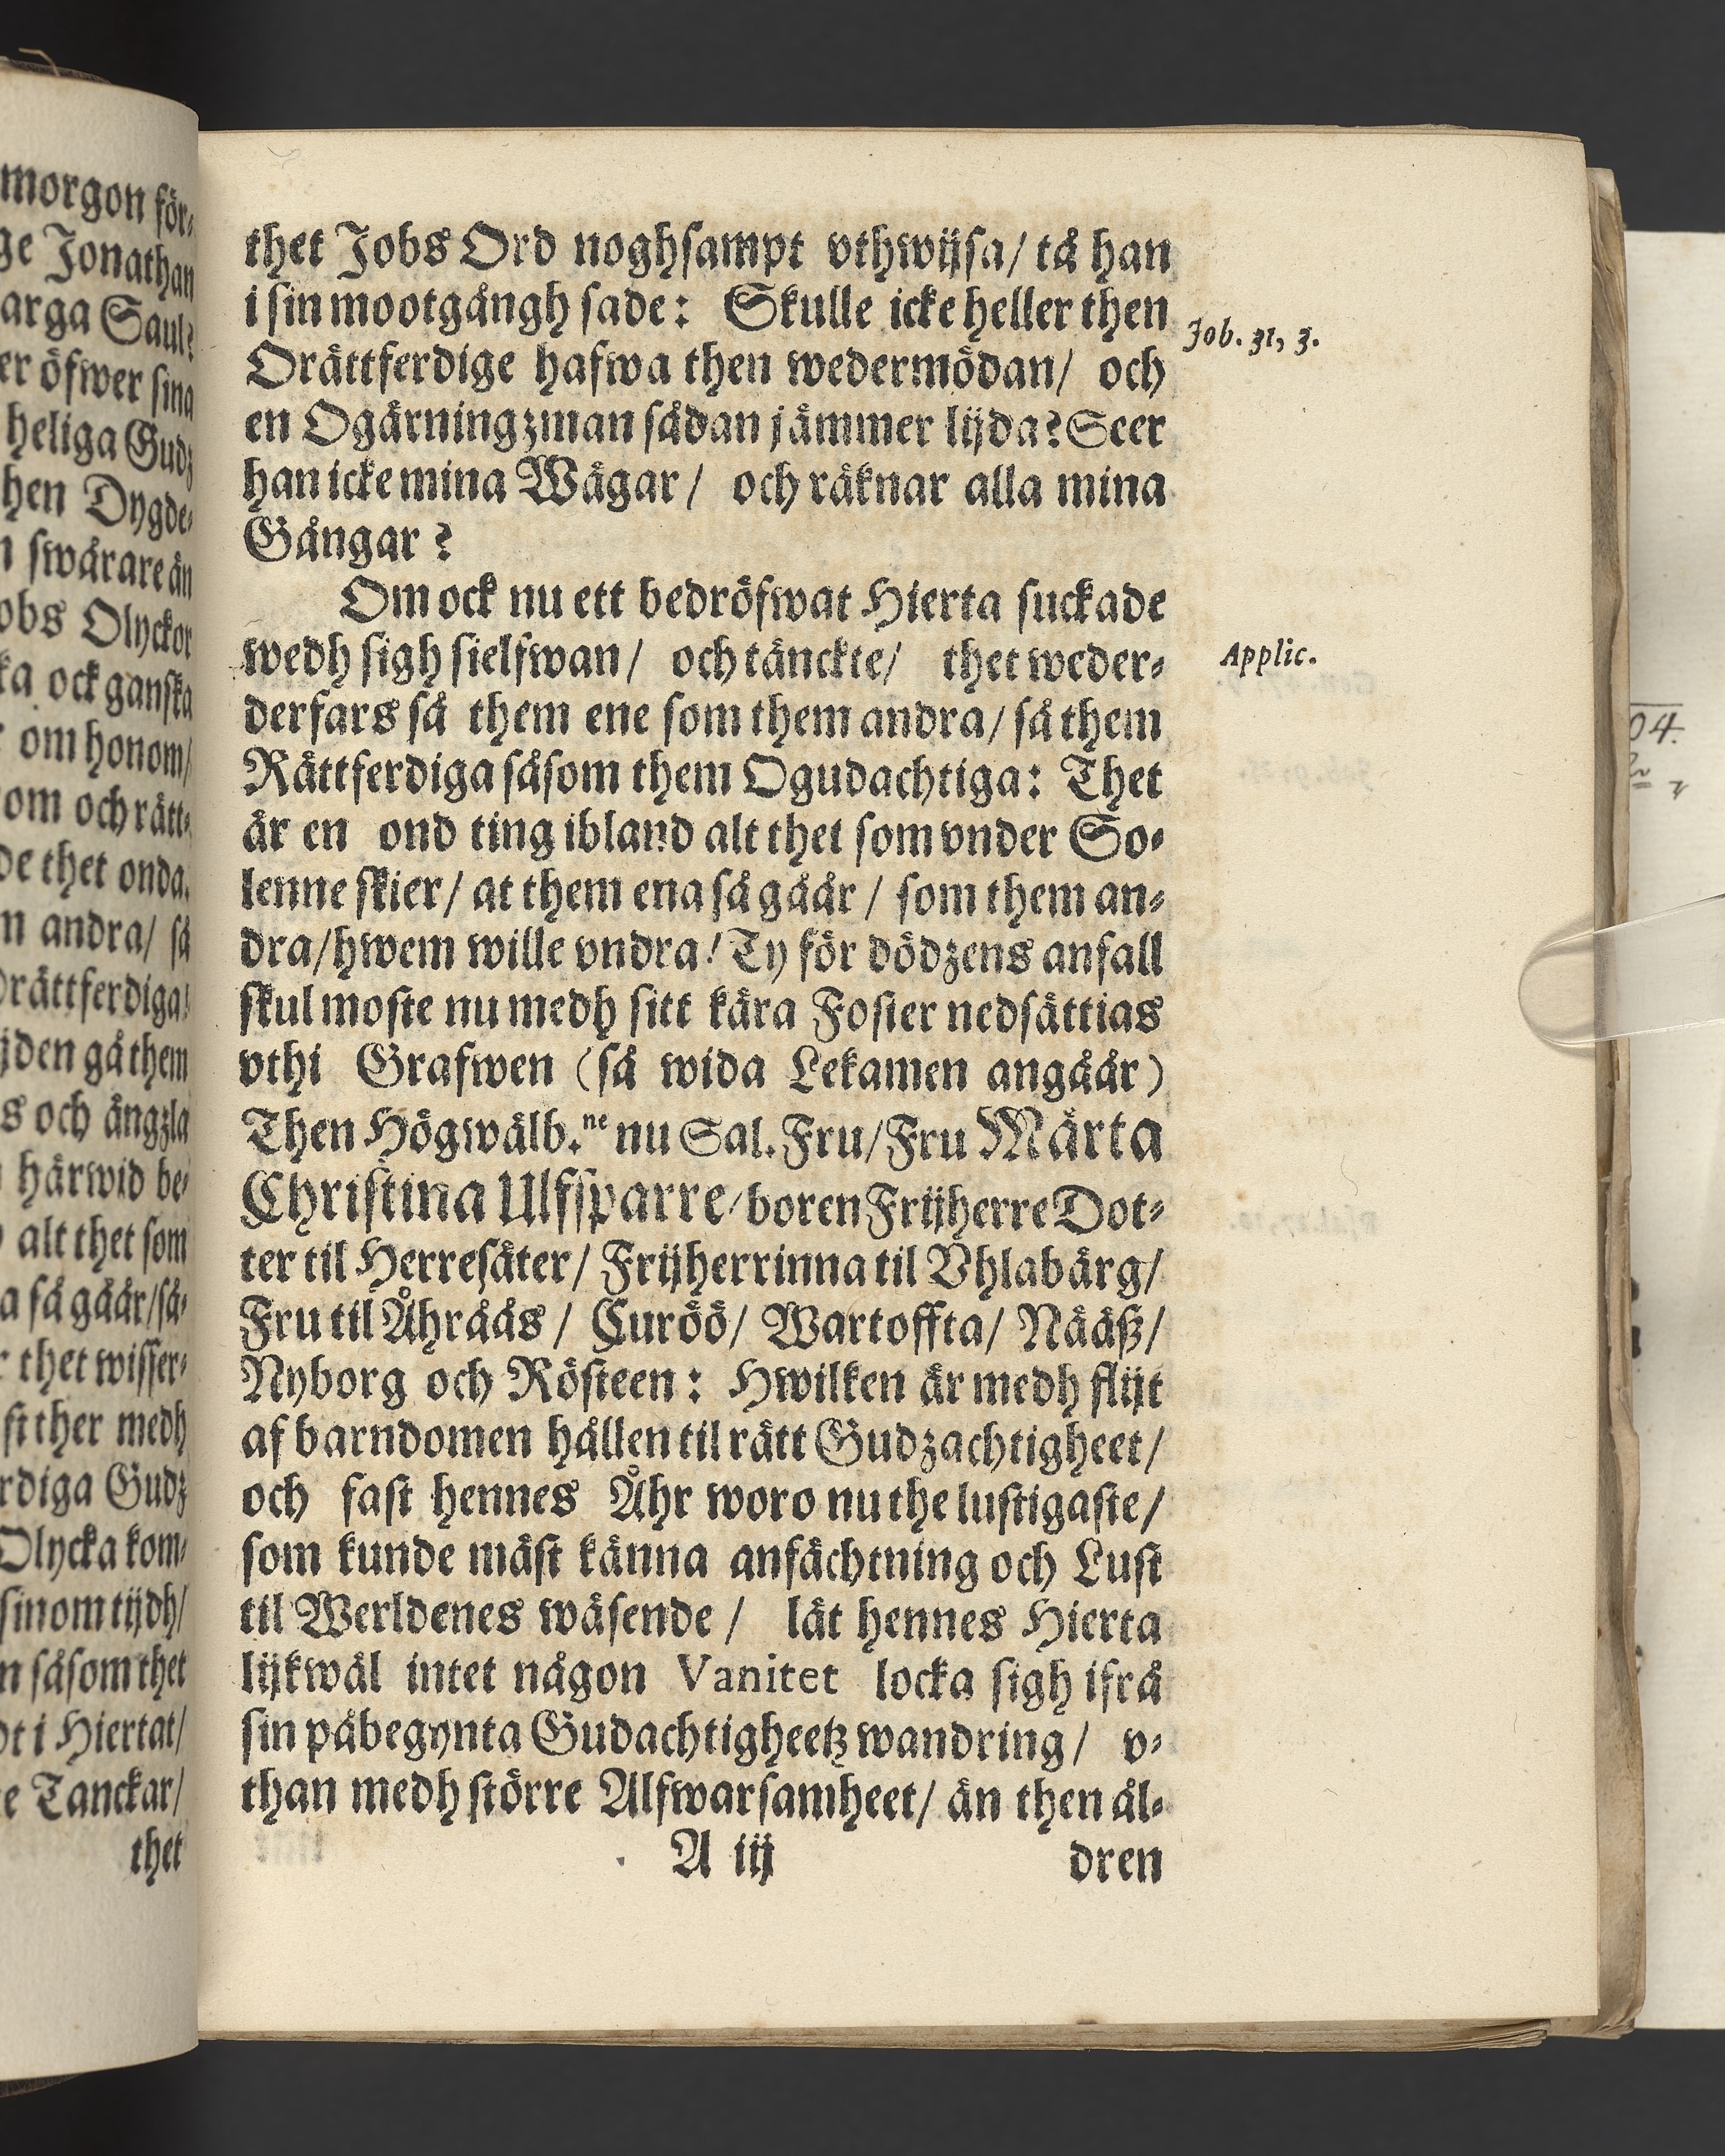 morgon för-
ge Jonathan
arga Saul?
er öfwer sina
heliga Gudz
hen Dygde-
n swårare än
obs Olyckor
ka ock ganska
r om honom/
om och rätt-
de thet onda.
m andra/ så
Orättferdiga/
ijden gå them
s och ångzla
härwid be-
alt thet som
a så gåår/så-
r thet wisser-
st ther medh
rdiga Gudz
Olycka kom-
sinom tijdh/
n såsom thet
ot i Hiertat/
e Tanckar/
thet
thet Jobs Ord noghsampt vthwijsa/ tå han
i sin mootgångh sade: Skulle icke heller then
Orättferdige hafwa then wedermödan/ och
en Ogärningzman sådan jämmer lijda? Seer
han icke mina Wägar/ och räknar alla mina
Gångar?
Om ock nu ett bedröfwat Hierta suckade
wedh sigh sielfwan/ och tänckte/ thet weder-
derfars så them ene som them andra/ så them
Rättferdiga såsom them Ogudachtiga: Thet
är en ond ting ibland alt thet som vnder So-
lenne skier/ at them ena så gåår/ som them an-
dra/hwem wille vndra! Ty för dödzens anfall
skul moste nu medh sitt kära Foster nedsättias
vthi Grafwen (så wida Lekamen angåår)
Then Högwälb.ne nu Sal. Fru/Fru Märta
Christina Ulfsparre/boren Frijherre Dot-
ter til Herresäter/ Frijherrinna til Vhlabärg/
Fru til Åhråås/ Curöö/ Wartoffta/ Nääß/
Nyborg och Rösteen: Hwilken är medh flijt
af barndomen hållen til rätt Gudzachtigheet/
och fast hennes Åhr woro nu the lustigaste/
som kunde mäst känna anfächtning och Lust
til Werldenes wäsende/ lät hennes Hierta
lijkwäl intet någon Vanitet locka sigh ifrå
sin påbegynta Gudachtigheetz wandring/ v-
than medh större Alfwarsamheet/ än then ål-
A iij
dren
Job. 31, 3.
Applic.
04.